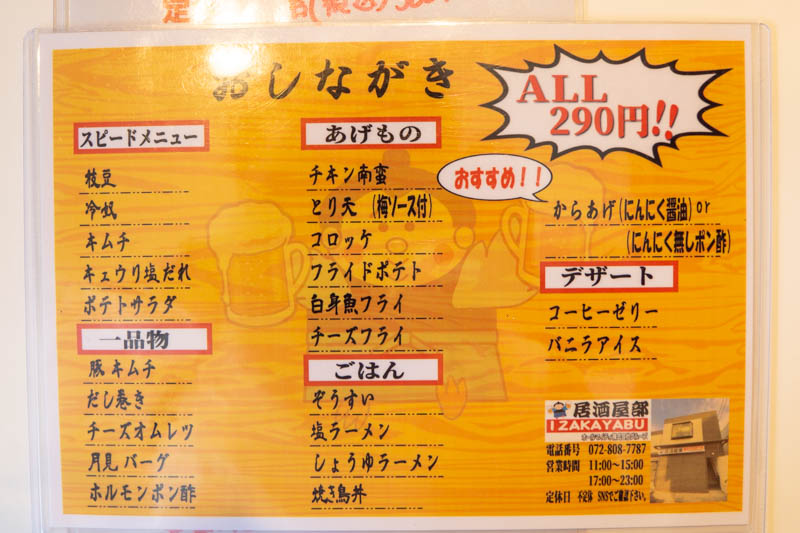 おしながき
ALL
290円!!
スピードメニュー
枝豆
冷奴
キムチ
キュウリ塩だれ
ポテトサラダ
一品物
豚キムチ
だし巻き
チーズオムレツ
月見バーグ
ホルモンポン酢
あげもの
チキン南蛮
とり天 (梅ソース付)
コロッケ
フライドポテト
白身魚フライ
チーズフライ
ごはん
ぞうすい
塩ラーメン
しょうゆラーメン
焼き鳥丼
おすすめ!!
からあげ(にんにく醤油)or
(にんにく無しポン酢)
デザート
コーヒーゼリー
バニラアイス
居酒屋部
IZAKAYABU
電話番号 072-808-7787
営業時間 11:00〜15:00
17:00〜23:00
定休日 不定休 SNSでご確認下さい。